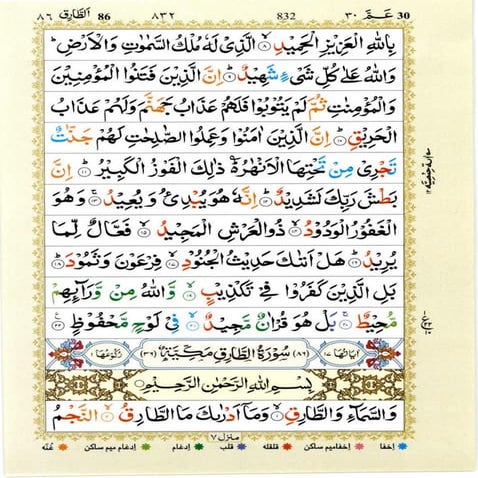 ٨٦ الطارق 86 ٨٣٢ 832 عَمَّ ٣٠ 30
بِاللّٰهِ الْعَزِيْزِ الْحَمِيْدِ ۙ﴿۸﴾ الَّذِىْ لَهٗ مُلْكُ السَّمٰوٰتِ وَالْاَرْضِ ؕ
وَاللّٰهُ عَلٰى كُلِّ شَىْءٍ شَهِيْدٌ ؕ﴿۹﴾ اِنَّ الَّذِيْنَ فَتَنُوا الْمُؤْمِنِيْنَ
وَالْمُؤْمِنٰتِ ثُمَّ لَمْ يَتُوْبُوْا فَلَهُمْ عَذَابُ جَهَنَّمَ وَلَهُمْ عَذَابُ
الْحَرِيْقِ ؕ﴿۱۰﴾ اِنَّ الَّذِيْنَ اٰمَنُوْا وَعَمِلُوا الصّٰلِحٰتِ لَهُمْ جَنّٰتٌ
تَجْرِىْ مِنْ تَحْتِهَا الْاَنْهٰرُ ؕ ذٰلِكَ الْفَوْزُ الْكَبِيْرُ ؕ﴿۱۱﴾ اِنَّ
بَطْشَ رَبِّكَ لَشَدِيْدٌ ؕ﴿۱۲﴾ اِنَّهٗ هُوَ يُبْدِئُ وَ يُعِيْدُ ۚ﴿۱۳﴾ وَهُوَ
الْغَفُوْرُ الْوَدُوْدُ ۙ﴿۱۴﴾ ذُو الْعَرْشِ الْمَجِيْدُ ۙ﴿۱۵﴾ فَعَّالٌ لِّمَا
يُرِيْدُ ؕ﴿۱۶﴾ هَلْ اَتٰٮكَ حَدِيْثُ الْجُنُوْدِ ۙ﴿۱۷﴾ فِرْعَوْنَ وَثَمُوْدَ ؕ﴿۱۸﴾
بَلِ الَّذِيْنَ كَفَرُوْا فِىْ تَكْذِيْبٍ ۙ﴿۱۹﴾ وَّاللّٰهُ مِنْ وَّرَآٮِٕهِمْ
مُّحِيْطٌ ۚ﴿۲۰﴾ بَلْ هُوَ قُرْاٰنٌ مَّجِيْدٌ ۙ﴿۲۱﴾ فِىْ لَوْحٍ مَّحْفُوْظٍ ﴿۲۲﴾
اٰيَاتُهَا ١٧ (٨٦) سُوْرَةُ الطَّارِقِ مَكِّيَّةٌ (٣٦) رُكُوْعُهَا ١
بِسْمِ اللّٰهِ الرَّحْمٰنِ الرَّحِيْمِ
وَالسَّمَآءِ وَالطَّارِقِ ۙ﴿۱﴾ وَمَاۤ اَدْرٰٮكَ مَا الطَّارِقُ ۙ﴿۲﴾ النَّجْمُ
منزل ٧
اخفا اخفا میم ساکن قلقله قلب ادغام ادغام میم ساکن غُنّه